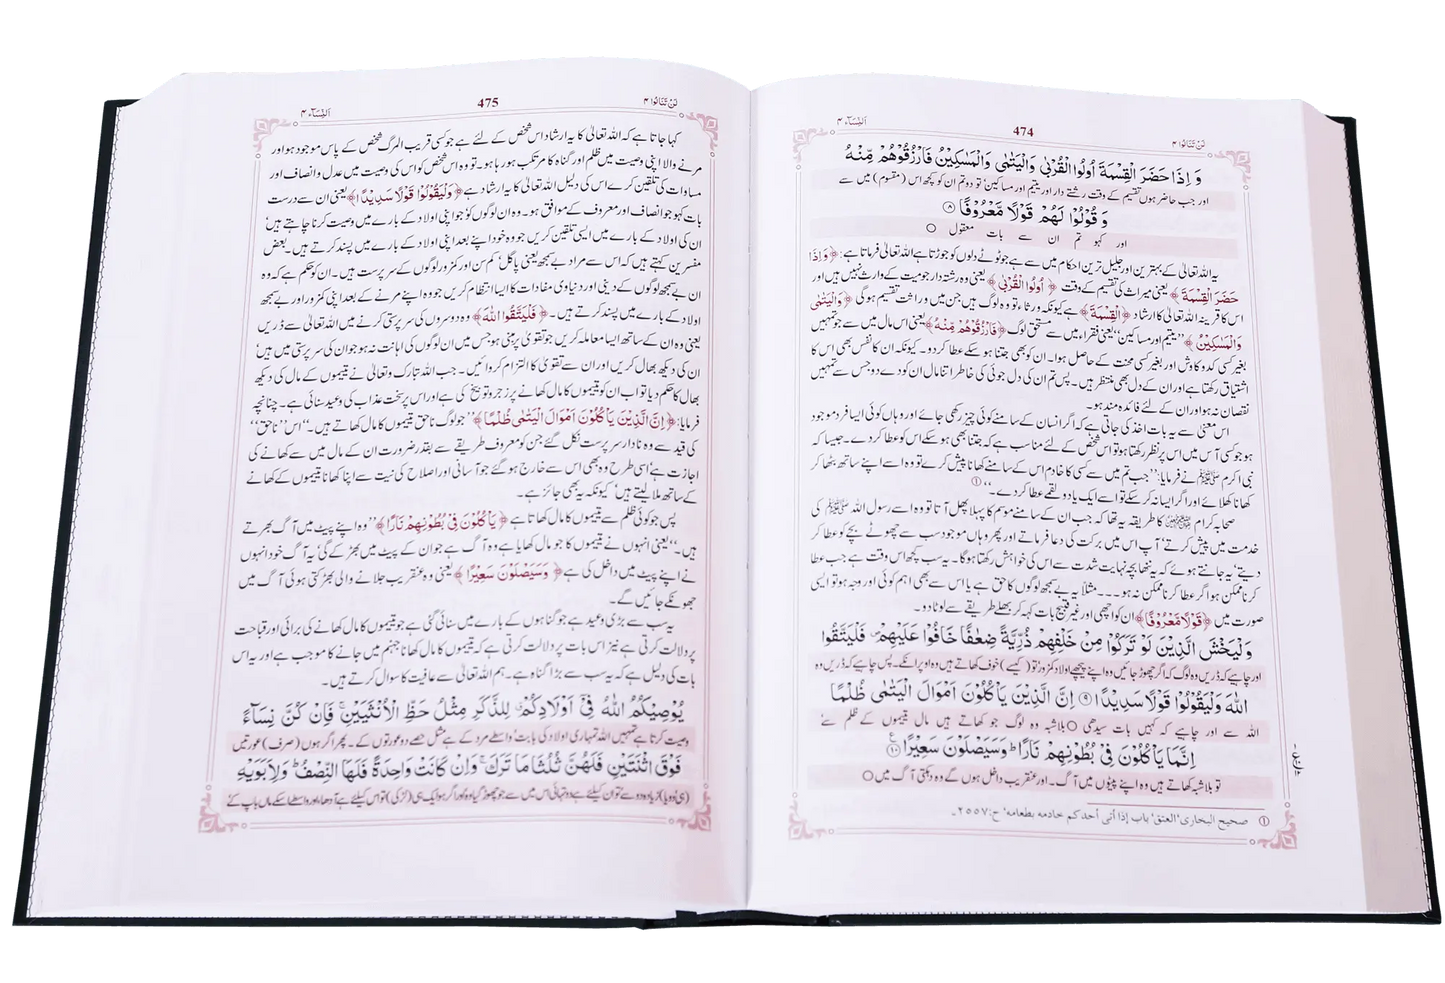 لَنْ تَنَالُوا ۴
474
اَلنِّسَآء ۴
وَ اِذَا حَضَرَ الْقِسْمَةَ اُولُوا الْقُرْبٰى وَالْيَتٰمٰى وَالْمَسٰكِيْنُ فَارْزُقُوْهُمْ مِّنْهُ
اور جب حاضر ہوں تقسیم کے وقت رشتے دار اور یتیم اور مساکین تو دو تم ان کو کچھ اس (مقسوم) میں سے
وَ قُوْلُوْا لَهُمْ قَوْلًا مَّعْرُوْفًا ۸
اور کہو تم ان سے بات معقول ○
یہ اللہ تعالیٰ کے بہترین اور جلیل ترین احکام میں سے ہے جو ٹوٹے دلوں کو جوڑتا ہے اللہ تعالیٰ فرماتا ہے: ﴿وَاِذَا
حَضَرَ الْقِسْمَةَ﴾ یعنی میراث کی تقسیم کے وقت ﴿اُولُوا الْقُرْبٰى﴾ یعنی وہ رشتہ دار جو میت کے وارث نہیں ہیں اور
اس کا قرینہ اللہ تعالیٰ کا ارشاد ﴿الْقِسْمَةَ﴾ ہے کیونکہ ورثاء تو وہ لوگ ہیں جن میں وراثت تقسیم ہو گی ﴿وَالْيَتٰمٰى
وَالْمَسٰكِيْنُ﴾ ’’یتیم اور مساکین‘‘ یعنی فقراء میں سے مستحق لوگ ﴿فَارْزُقُوْهُمْ مِّنْهُ﴾ یعنی اس مال میں سے جو تمہیں
بغیر کسی کدوکاوش اور بغیر کسی محنت کے حاصل ہوا۔ ان کو بھی جتنا ہو سکے عطا کر دو۔ کیونکہ ان کا نفس بھی اس کا
اشتیاق رکھتا ہے اور ان کے دل بھی منتظر ہیں۔ پس تم ان کی دل جوئی کی خاطر اتنا مال ان کو دے دو جس سے تمہیں
نقصان نہ ہو اور ان کے لئے فائدہ مند ہو۔
اس معنی سے یہ بات اخذ کی جاتی ہے کہ اگر انسان کے سامنے کوئی چیز رکھی جائے اور وہاں کوئی ایسا فرد موجود
ہو جو کسی آس میں اس پر نظر رکھتا ہو تو اس شخص کے لئے مناسب ہے کہ جتنا بھی ہو سکے اس کو عطا کر دے۔ جیسا کہ
نبی اکرم ﷺ نے فرمایا: ’’جب تم میں سے کسی کا خادم اس کے سامنے کھانا پیش کرے تو وہ اسے اپنے ساتھ بٹھا کر
کھانا کھلائے اور اگر ایسا نہ کر سکے تو اسے ایک یا دو لقمے عطا کر دے۔‘‘ ①
صحابہ کرام کا طریقہ یہ تھا کہ جب ان کے سامنے موسم کا پہلا پھل آتا تو وہ اسے رسول اللہ ﷺ کی
خدمت میں پیش کرتے‘ آپ اس میں برکت کی دعا فرماتے اور پھر وہاں موجود سب سے چھوٹے بچے کو عطا کر
دیتے‘ یہ جانتے ہوئے کہ یہ ننھا بچہ نہایت شدت سے اس کی خواہش رکھتا ہو گا۔ یہ سب کچھ اس وقت ہے جب عطا
کرنا ممکن ہو اگر عطا کرنا ممکن نہ ہو۔۔۔ مثلاً یہ بے سمجھ لوگوں کا حق ہے یا اس سے بھی اہم کوئی اور وجہ ہو تو ایسی
صورت میں ﴿قَوْلًا مَّعْرُوْفًا﴾ ان کو اچھی اور غیر قبیح بات کہہ کر بھلے طریقے سے لوٹا دو۔
وَلْيَخْشَ الَّذِيْنَ لَوْ تَرَكُوْا مِنْ خَلْفِهِمْ ذُرِّيَّةً ضِعٰفًا خَافُوْا عَلَيْهِمْ ۖ فَلْيَتَّقُوا
اور چاہیے کہ ڈریں وہ لوگ کہ اگر چھوڑ جائیں وہ اپنے پیچھے اولاد کمزور تو (کیسے) خوف کھاتے ہیں وہ اوپر انکے۔ پس چاہیے کہ ڈریں وہ
اللّٰهَ وَلْيَقُوْلُوْا قَوْلًا سَدِيْدًا ۹ اِنَّ الَّذِيْنَ يَاْكُلُوْنَ اَمْوَالَ الْيَتٰمٰى ظُلْمًا
اللہ سے اور چاہیے کہ کہیں بات سیدھی ○ بلاشبہ وہ لوگ جو کھاتے ہیں مال یتیموں کے ظلم سے
اِنَّمَا يَاْكُلُوْنَ فِيْ بُطُوْنِهِمْ نَارًا ؕ وَسَيَصْلَوْنَ سَعِيْرًا ۱۰
تو بلاشبہ کھاتے ہیں وہ اپنے پیٹوں میں آگ۔ اور عنقریب داخل ہوں گے وہ دہکتی آگ میں ○
① صحيح البخاري، العتق، باب إذا أتى أحدكم خادمه بطعامه، ح:۲۵۵۷۔
لَنْ تَنَالُوا ۴
475
اَلنِّسَآء ۴
کہا جاتا ہے کہ اللہ تعالیٰ کا یہ ارشاد اس شخص کے لئے ہے جو کسی قریب المرگ شخص کے پاس موجود ہو اور
مرنے والا اپنی وصیت میں ظلم اور گناہ کا مرتکب ہو رہا ہو۔ تو وہ اس شخص کو اس کی وصیت میں عدل و انصاف اور
مساوات کی تلقین کرے اس کی دلیل اللہ تعالیٰ کا یہ ارشاد ہے ﴿وَلْيَقُوْلُوْا قَوْلًا سَدِيْدًا﴾ یعنی ان سے درست
بات کہو جو انصاف اور معروف کے موافق ہو۔ وہ ان لوگوں کو‘ جو اپنی اولاد کے بارے میں وصیت کرنا چاہتے ہیں‘
ان کی اولاد کے بارے میں ایسی تلقین کریں جو وہ خود اپنے بعد اپنی اولاد کے بارے میں پسند کرتے ہیں۔ بعض
مفسرین کہتے ہیں کہ اس سے مراد بے سمجھ یعنی پاگل‘ کم سن اور کمزور لوگوں کے سرپرست ہیں۔ ان کو حکم ہے کہ وہ
ان بے سمجھ لوگوں کے دینی اور دنیاوی مفادات کا ایسا انتظام کریں جو وہ اپنے مرنے کے بعد اپنی کمزور اور بے سمجھ
اولاد کے بارے میں پسند کرتے ہیں۔ ﴿فَلْيَتَّقُوا اللّٰهَ﴾ وہ دوسروں کی سرپرستی کرنے میں اللہ تعالیٰ سے ڈریں
یعنی وہ ان کے ساتھ ایسا معاملہ کریں جو تقویٰ پر مبنی ہو جس میں ان لوگوں کی اہانت نہ ہو جو ان کی سرپرستی میں ہیں‘
ان کی دیکھ بھال کریں اور ان سے تقویٰ کا التزام کروائیں۔ جب اللہ تبارک و تعالیٰ نے یتیموں کے مال کی دیکھ
بھال کا حکم دیا تو اب ان کو یتیموں کا مال کھانے پر زجر و توبیخ کی ہے اور اس پر سخت عذاب کی وعید سنائی ہے۔ چنانچہ
فرمایا: ﴿اِنَّ الَّذِيْنَ يَاْكُلُوْنَ اَمْوَالَ الْيَتٰمٰى ظُلْمًا﴾ ’’جو لوگ ناحق یتیموں کا مال کھاتے ہیں۔‘‘ اس ’’ناحق‘‘
کی قید سے وہ نادار سرپرست نکل گئے جن کو معروف طریقے سے بقدر ضرورت ان کے مال میں سے کھانے کی
اجازت ہے‘ اسی طرح وہ بھی اس سے خارج ہو گئے جو آسانی اور اصلاح کی نیت سے اپنا کھانا یتیموں کے کھانے
کے ساتھ ملا لیتے ہیں‘ کیونکہ یہ بھی جائز ہے۔
پس جو کوئی ظلم سے یتیموں کا مال کھاتا ہے ﴿يَاْكُلُوْنَ فِيْ بُطُوْنِهِمْ نَارًا﴾ ’’وہ اپنے پیٹ میں آگ بھرتے
ہیں۔‘‘ یعنی انہوں نے یتیموں کا جو مال کھایا ہے وہ آگ ہے جو ان کے پیٹ میں بھڑکے گی‘ یہ آگ خود انہوں
نے اپنے پیٹ میں داخل کی ہے ﴿وَسَيَصْلَوْنَ سَعِيْرًا﴾ یعنی وہ عنقریب جلانے والی بھڑکتی ہوئی آگ میں
جھونکے جائیں گے۔
یہ سب سے بڑی وعید ہے جو گناہوں کے بارے میں سنائی گئی ہے جو یتیموں کا مال کھانے کی برائی اور قباحت
پر دلالت کرتی ہے نیز اس بات پر دلالت کرتی ہے کہ یتیموں کا مال کھانا جہنم میں جانے کا موجب ہے اور یہ اس
بات کی دلیل ہے کہ یہ سب سے بڑا گناہ ہے۔ ہم اللہ تعالیٰ سے عافیت کا سوال کرتے ہیں۔
يُوْصِيْكُمُ اللّٰهُ فِيْٓ اَوْلَادِكُمْ ۤ لِلذَّكَرِ مِثْلُ حَظِّ الْاُنْثَيَيْنِ ۚ فَاِنْ كُنَّ نِسَآءً
وصیت کرتا ہے تمہیں اللہ تمہاری اولاد کی بابت‘ واسطے مرد کے ہے مثل حصے دو عورتوں کے۔ پھر اگر ہوں (صرف) عورتیں
فَوْقَ اثْنَتَيْنِ فَلَهُنَّ ثُلُثَا مَا تَرَكَ ۚ وَاِنْ كَانَتْ وَاحِدَةً فَلَهَا النِّصْفُ ؕ وَلِاَبَوَيْهِ
(ہی دو یا) زیادہ دو سے تو ان کیلئے ہے دو تہائی اس میں سے جو چھوڑ گیا وہ اور اگر ہو ایک ہی (لڑکی) تو اس کیلئے ہے آدھا‘ اور واسطے اسکے ماں باپ کے